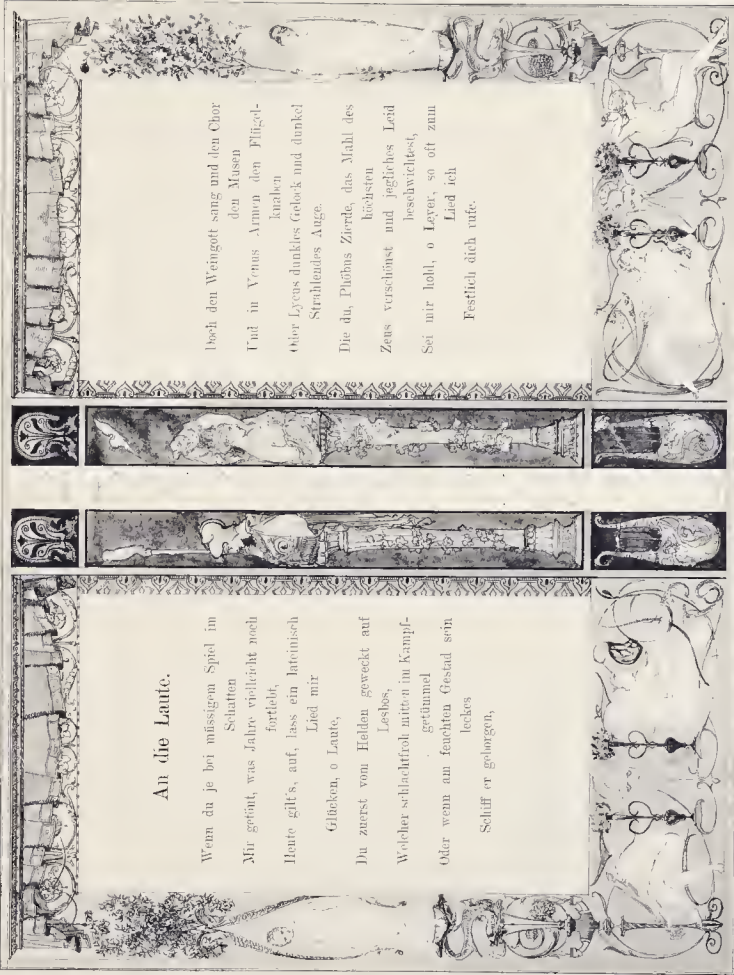 An die Laute.
Wenn du je bei müssigem Spiel im
Schatten
Mir getönt, was Jahre vielleicht noch
fortlebt,
Heute gilt's, auf, lass ein lateinisch
Lied mir
Glücken, o Laute,
Du zuerst vom Helden geweckt auf
Lesbos,
Welcher schlachtfroh mitten im Kampf-
getümmel
Oder wenn am feuchten Gestad sein
leckes
Schiff er geborgen,
Doch den Weingott sang und den Chor
den Musen
Und in Venus Armen den Flügel-
knaben
Oder Lycus dunkles Gelock und dunkel
Strahlendes Auge.
Die du, Phöbus Zierde, das Mahl des
höchsten
Zeus verschönst und jegliches Leid
beschwichtest,
Sei mir hold, o Leyer, so oft zum
Lied ich
Festlich dich rufe.